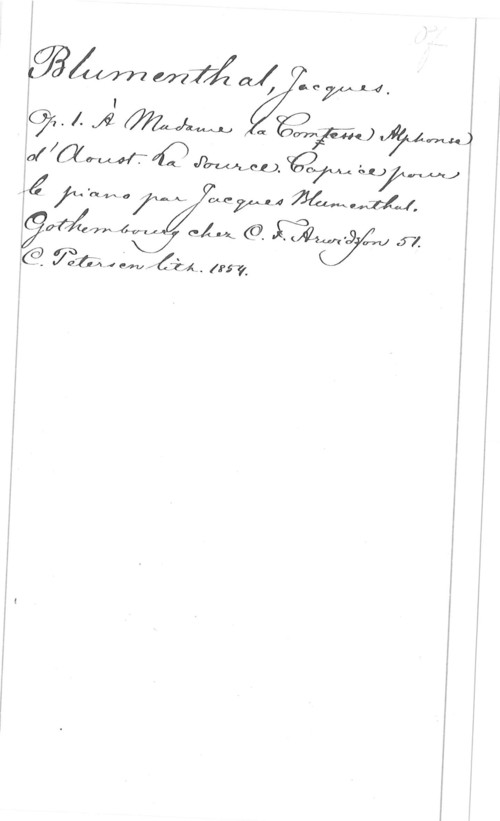 Blumenthal, Jacques.
Op. 1. À Madame la Comtesse Alphonse
d'Aoust. La source. Caprice pour
le piano par Jacques Blumenthal.
Gothembourg chez C. F. Arwidsson 51.
C. Petersen lith. 1854.